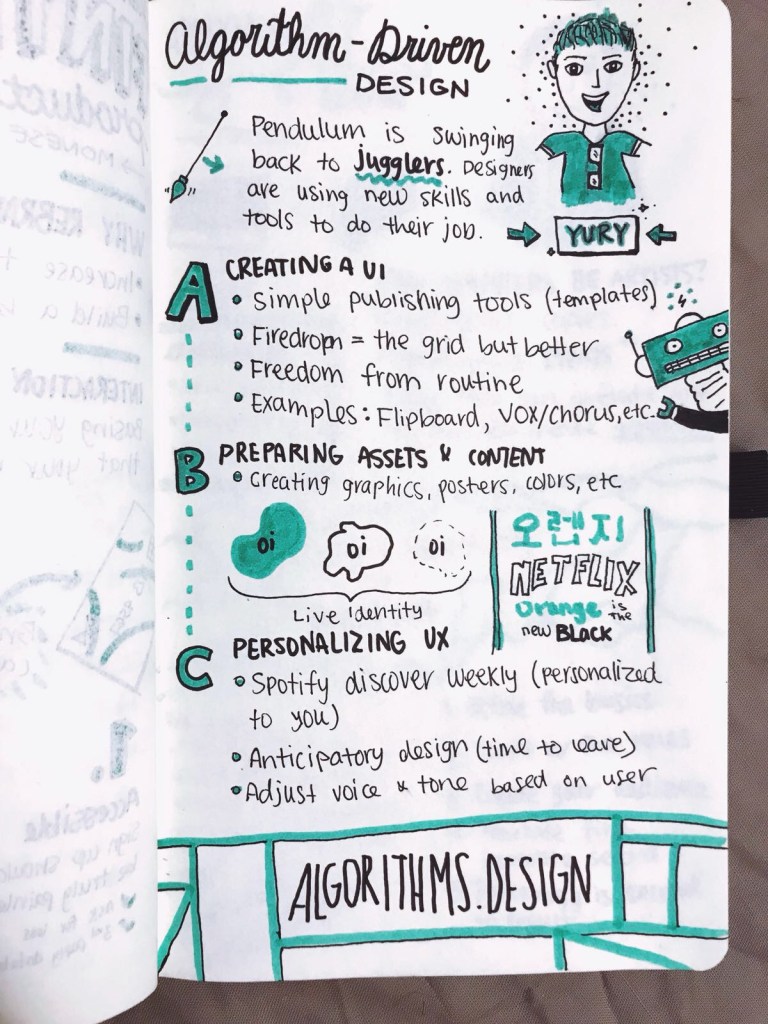 Algorithm-Driven
DESIGN
Pendulum is swinging
back to jugglers. Designers
are using new skills and
tools to do their job.
YURY
A CREATING A UI
• Simple publishing tools (templates)
• Firedrop = the grid but better
• Freedom from routine
• Examples: Flipboard, VOX/chorus, etc.
B PREPARING ASSETS & CONTENT
• Creating graphics, posters, colors, etc.
oi oi oi
Live Identity
오렌지
NETFLIX
Orange is the
new BLACK
C PERSONALIZING UX
• Spotify discover weekly (personalized
to you)
• Anticipatory design (time to leave)
• Adjust voice & tone based on user
ALGORITHMS.DESIGN